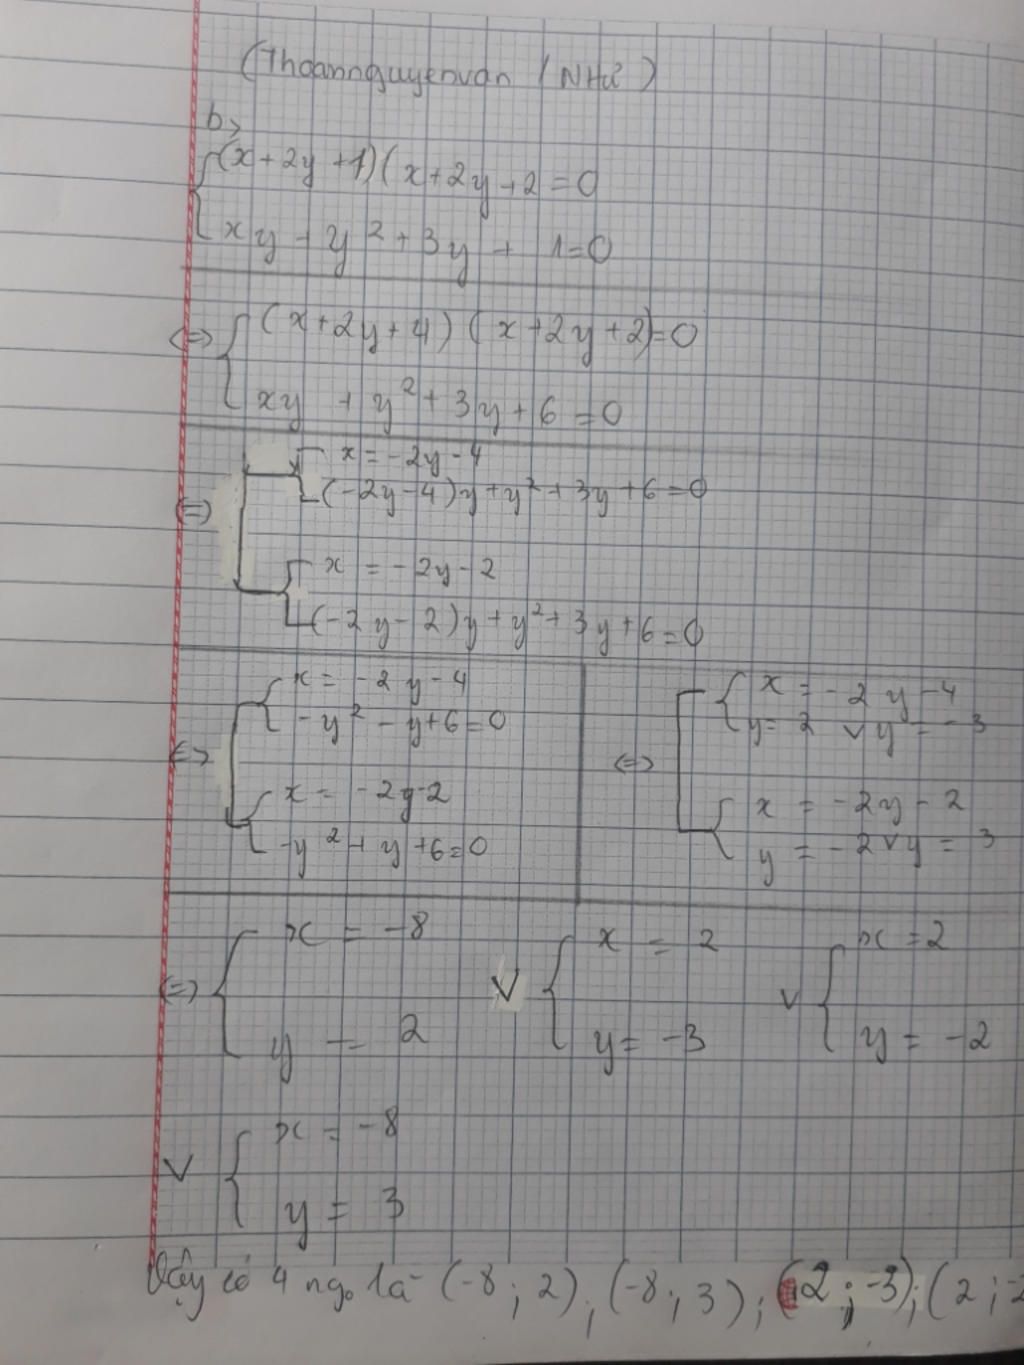 (Thoannguyenvan (NHư)
b>
{(x+2y+1)(x+2y+2=0
xy+y²+3y+1=0
<=> {(x+2y+4)(x+2y+2)=0
xy+y²+3y+6=0
x=-2y-4
<=> (-2y-4)y+y²+3y+6=0
x=-2y-2
(-2y-2)y+y²+3y+6=0
x=-2y-4
-y²-y+6=0
<=>
x=-2y-2
-y²+y+6=0
x=-2y-4
y=2 v y=-3
<=>
x=-2y-2
y=-2 v y=3
<=> {x=-8 v {x=2 v {x=2
y=2 y=-3 y=-2
v {x=-8
y=3
Vậy có 4 ng₀ là (-8;2),(-8;3);(2;-3);(2;-2